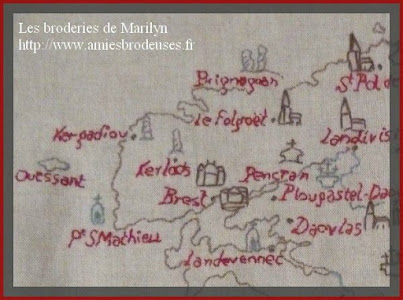 Les broderies de Marilyn
http://www.amiesbrodeuses.fr
Brignogan
St Pol d
Le Folgoët
Landivis
Kergadiou
Kerloas
Pencran
Ouessant
Brest
Plougastel-Dao
Pte S Mathieu
Daoulas
Landevennec